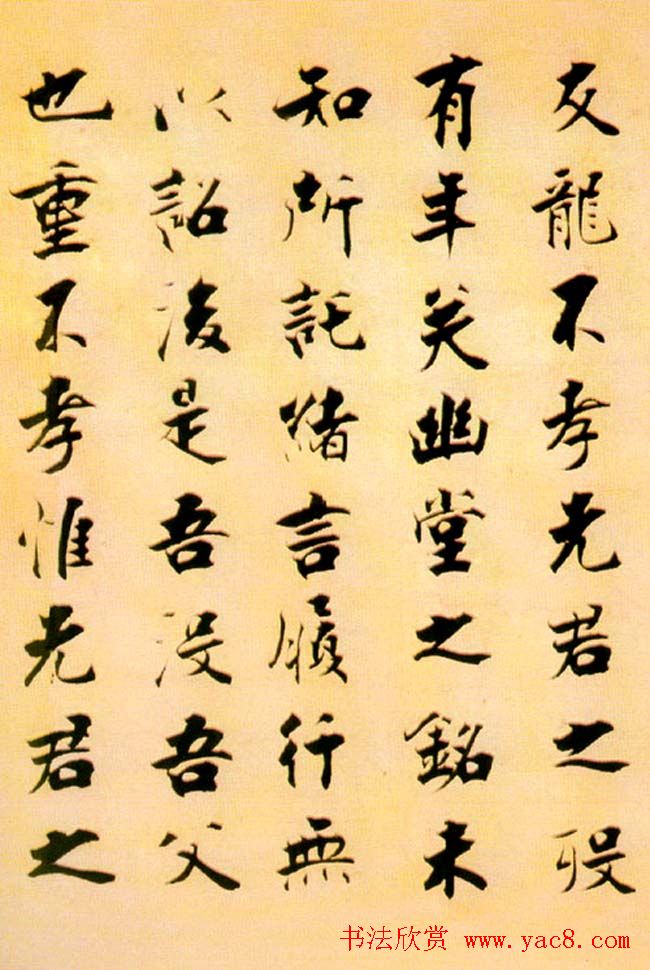 友龍不孝先君之歿
有年矣幽堂之銘未
知所託緒言履行無
以詔後是吾没吾父
也重不孝惟先君之
书法欣赏 www.yac8.com